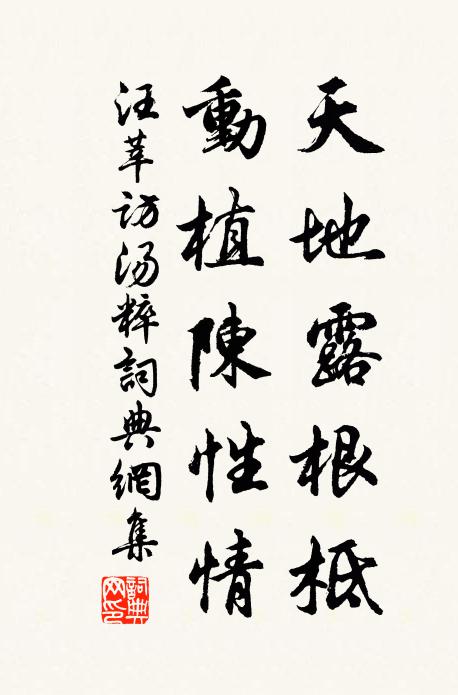 天地露根柢
動植陳性情
汪莘访汤粹詞典網集
詞典網印